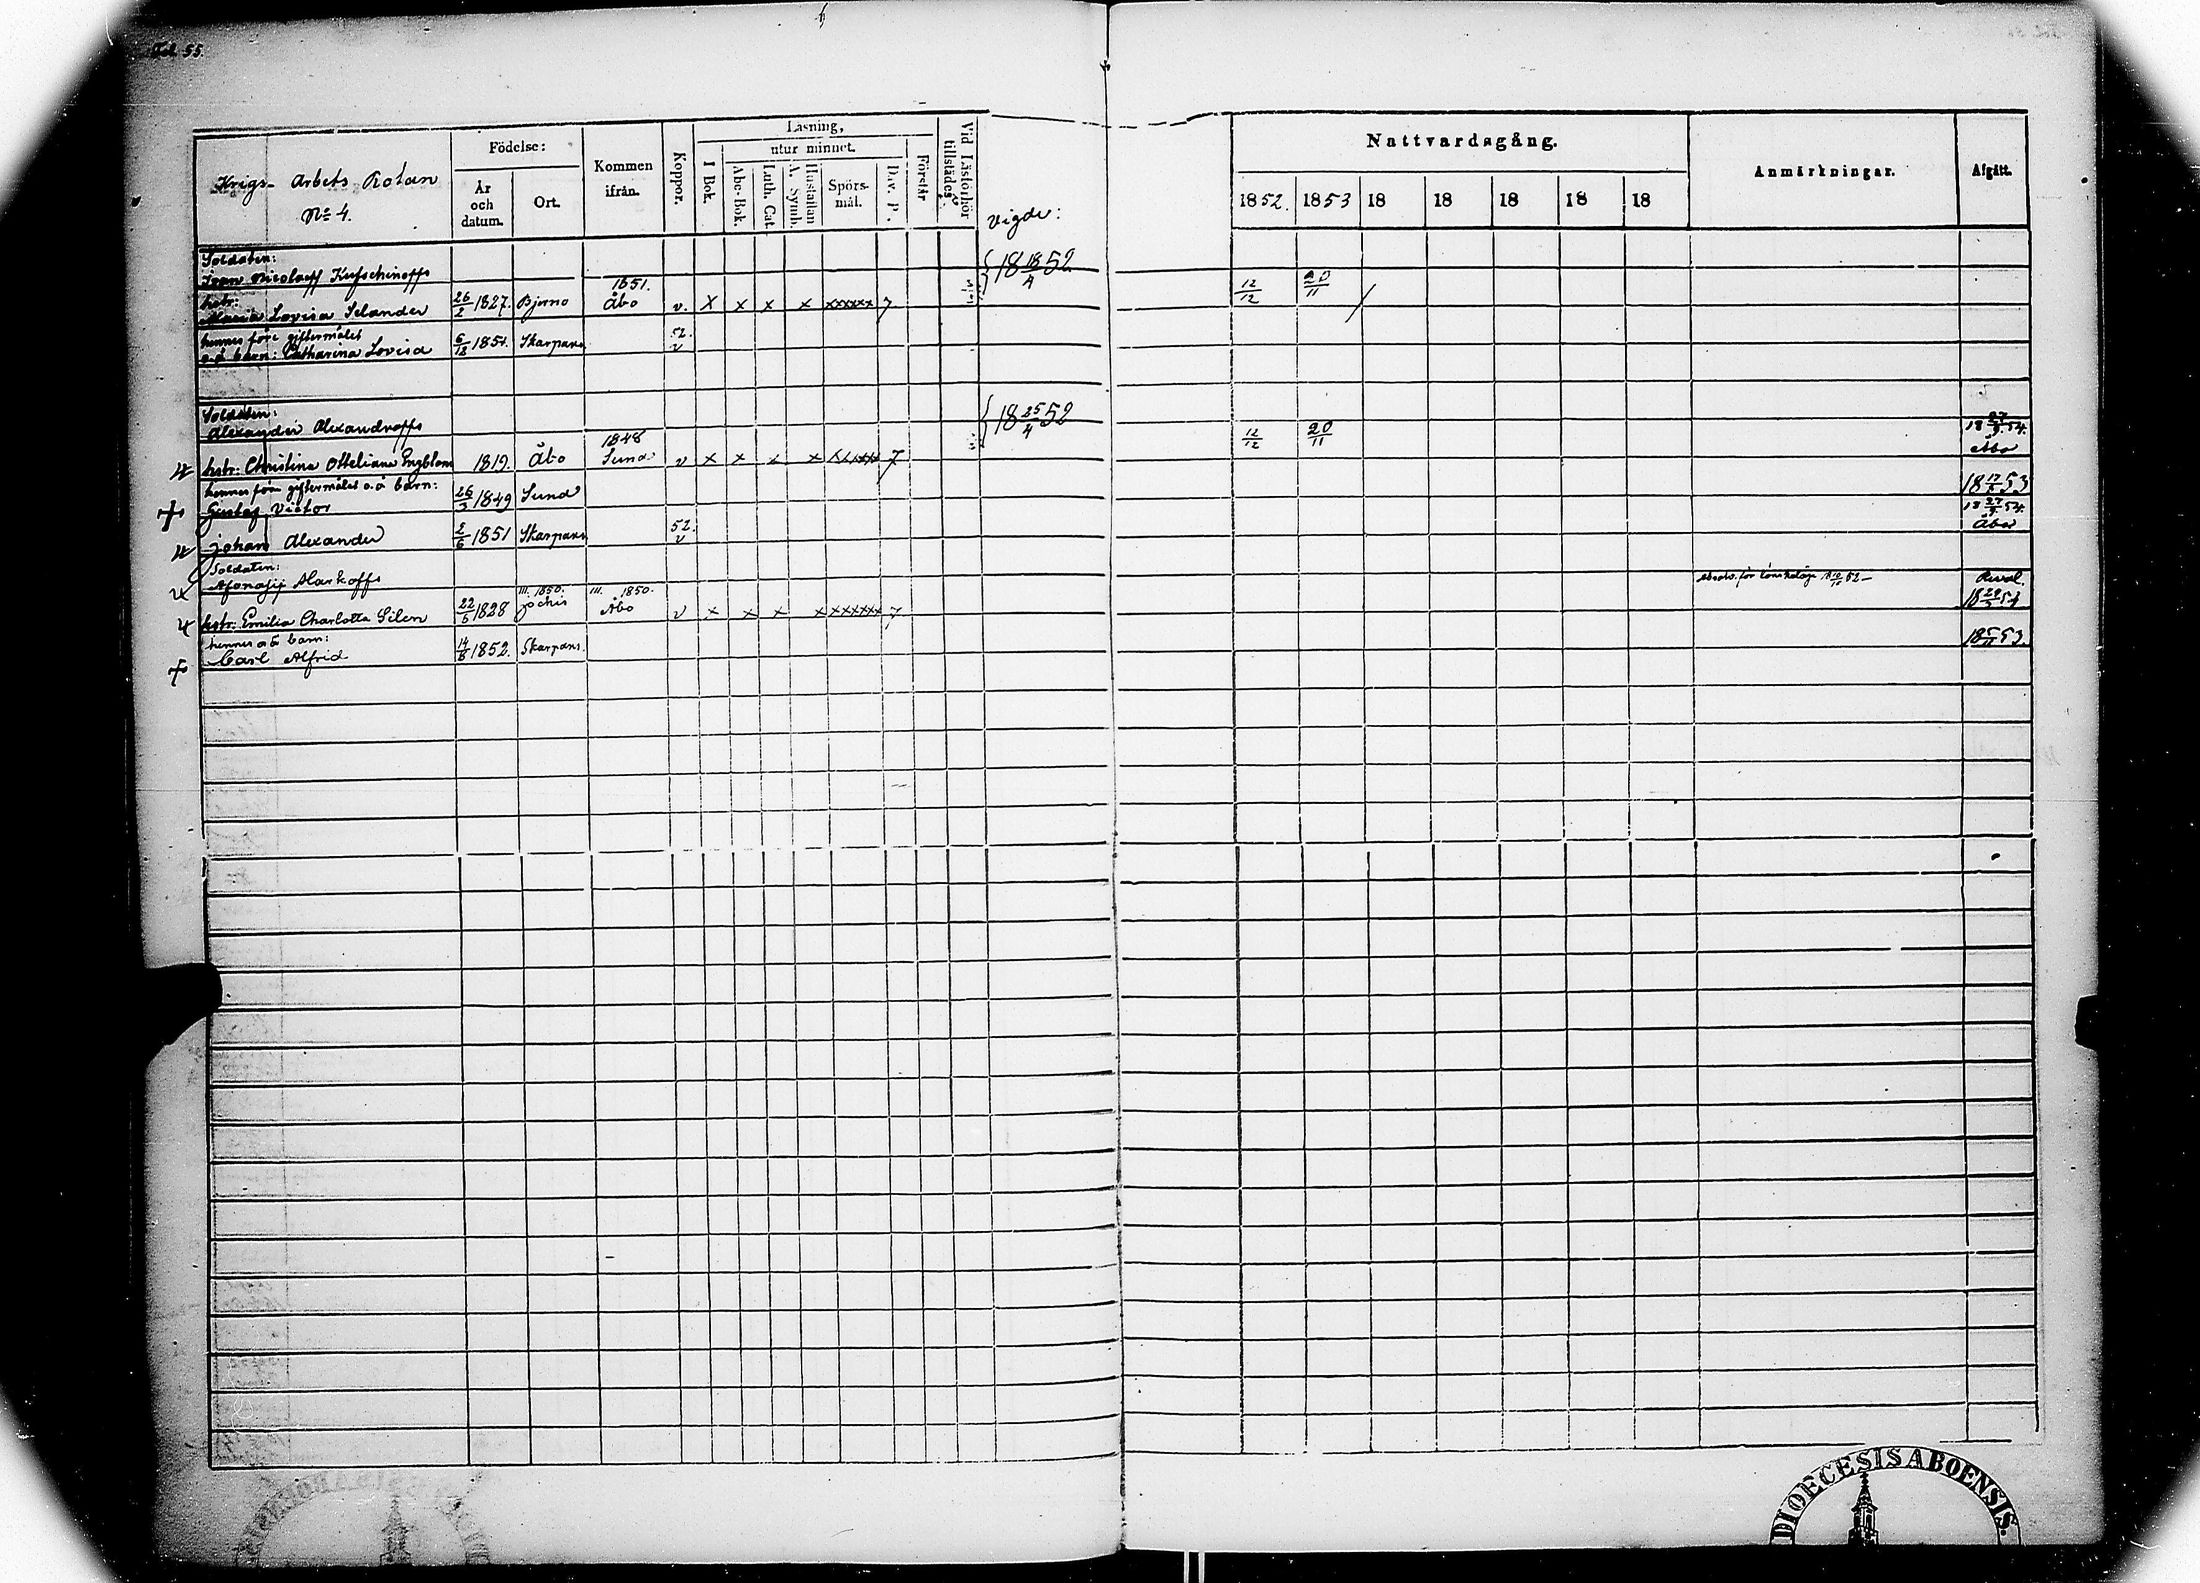 Fol. 55.
Krigs- Arbets Rotan
No 4.
Födelse:
År och datum.
Ort.
Kommen ifrån.
Koppor.
Läsning,
utur minnet.
I Bok.
Abc-Bok.
Luth. Cat.
Hustaflan A. Symb.
Spörsmål.
Dav. P.
Förstår
Vid Läsförhör tillstädes.
Vigde:
Nattvardsgång.
1852. 1853 18 18 18 18 18
Anmärkningar.
Afgått.
Soldaten:
Ivan Nicolaeff 18 18/4 52
hstr: 1851.
Maria Lovisa Selander 26/2 1827. Bjerno Åbo v. x x x x xxxxxx 7 12/12 20/11
hennes före giftermålet 52.
o.ä barn: Catharina Lovisa 6/12 1851. Skarpans v
Soldaten:
Alexander Alexandroff 18 25/4 52 18 27/9 54.
1848 12/12 20/11 Åbo
hstr: Christina Otteliana Engblom 1819. Åbo Sund v x x x x xxxxxx 7
hennes före giftermålet o.ä barn: 53
Gustaf Victor 1849 Sund 18 27/9 54.
52. Åbo
Johan Alexander 2/6 1851 Skarpans v
Soldaten:
Afonasij Markoff 52 Reval.
1850. 1850.
hstr: Emilia Charlotta Silen 22/5 1828 Jockis Åbo v x x x xxxxxxx 7 54
hennes o ä barn: 18 5/11 53.
Carl Alfrid 14/8 1852. Skarpans.
DIOECESIS ABOENSIS.